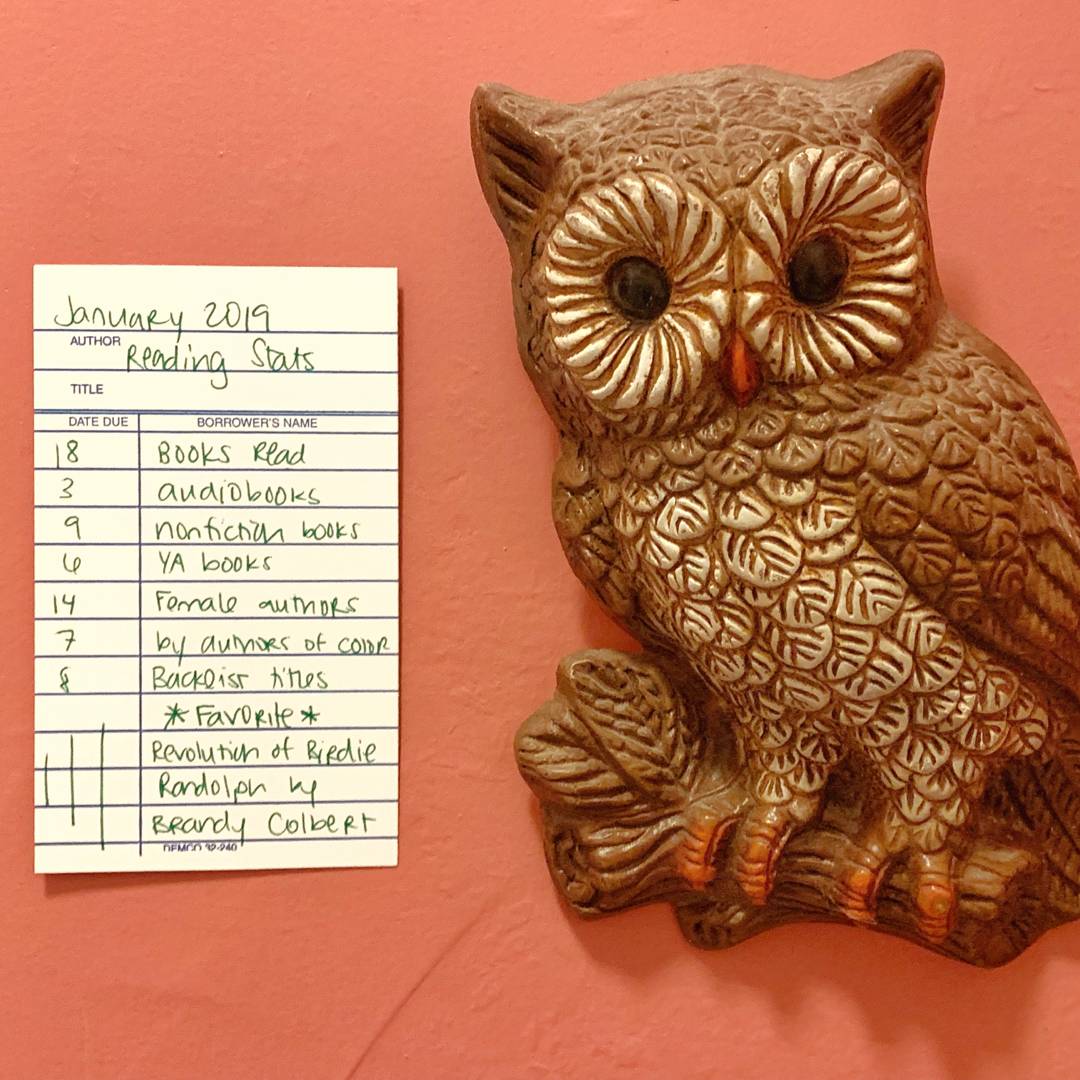 January 2019
AUTHOR
Reading Stats
TITLE
DATE DUE BORROWER'S NAME
18 Books Read
3 audiobooks
9 nonfiction books
6 YA books
14 Female authors
7 by authors of color
8 Backlist titles
*Favorite*
Revolution of Birdie
Randolph by
Brandy Colbert
DEMCO 32-240